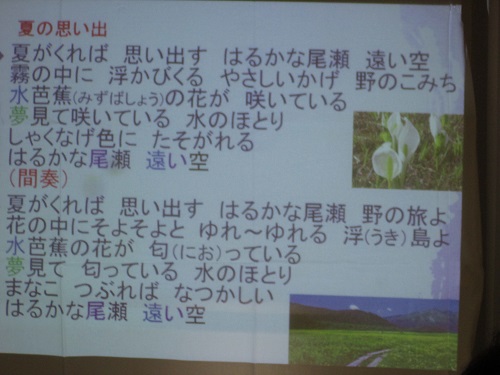 夏の思い出
夏がくれば 思い出す はるかな尾瀬 遠い空
霧の中に 浮かびくる やさしいかげ 野のこみち
水芭蕉(みずばしょう)の花が 咲いている
夢見て咲いている 水のほとり
しゃくなげ色に たそがれる
はるかな尾瀬 遠い空
(間奏)
夏がくれば 思い出す はるかな尾瀬 野の旅よ
花の中にそよそよと ゆれ～ゆれる 浮(うき)島よ
水芭蕉の花が 匂(にお)っている
夢見て 匂っている 水のほとり
まなこ つぶれば なつかしい
はるかな尾瀬 遠い空